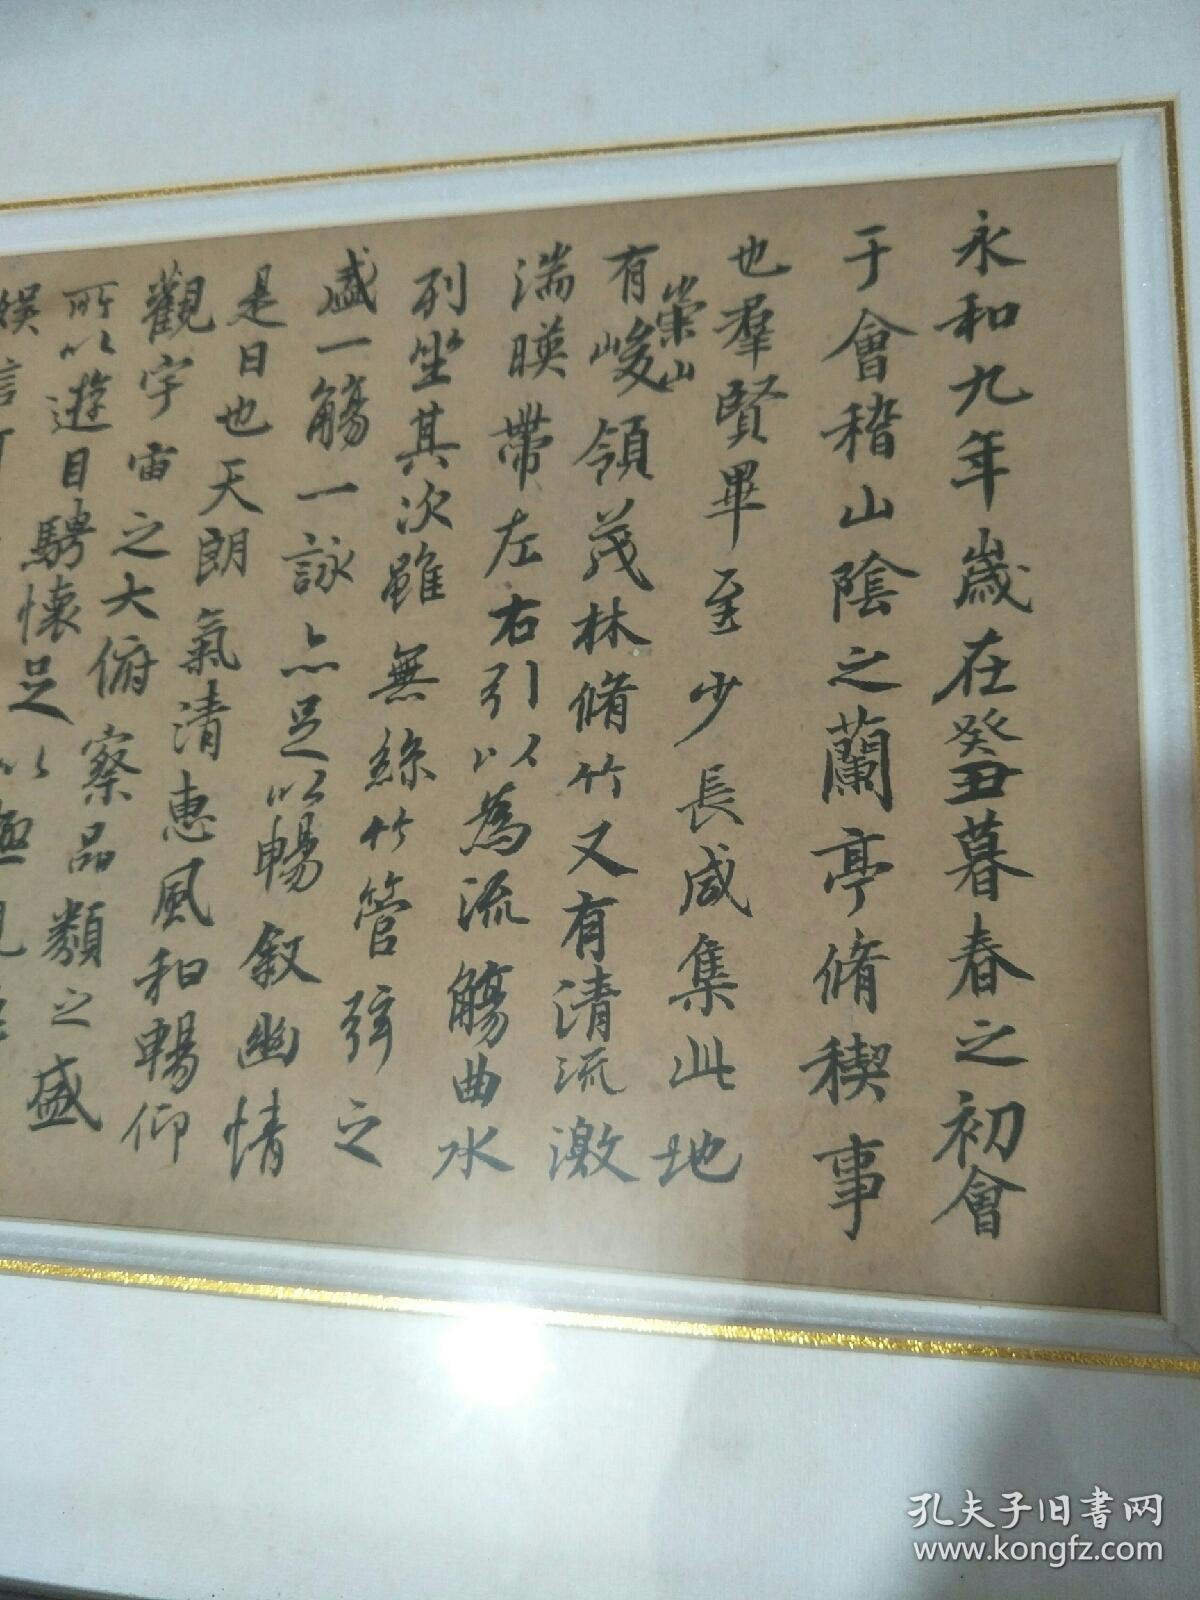 永和九年歲在癸丑暮春之初會
于會稽山陰之蘭亭脩稧事
也羣賢畢至少長咸集此地
有崇山峻領茂林脩竹又有清流激
湍暎帶左右引以為流觴曲水
列坐其次雖無絲竹管弦之
盛一觴一詠亦足以暢敘幽情
是日也天朗氣清惠風和暢仰
觀宇宙之大俯察品類之盛
所以遊目騁懷足以極視
娛信可
孔夫子旧书网
www.kongfz.com